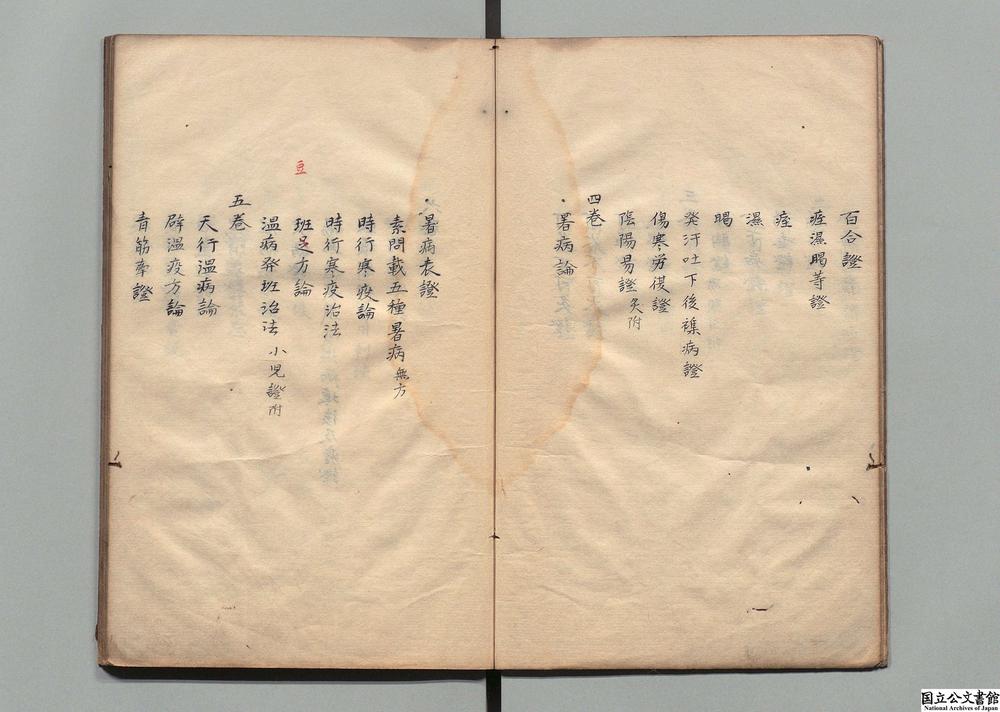 百合證
痓濕暍等證
痓
濕
暍
發汗吐下後雜病證
傷寒労復證
陰陽易證 灸附
四卷
暑病論
暑病表證
素問載五種暑病 無方
時行寒疫論
時行寒疫治法
豆
班足方論
溫病發班治法 小兒證附
五卷
天行溫病論
辟溫疫方論
青筋牽證
国立公文書館
National Archives of Japan